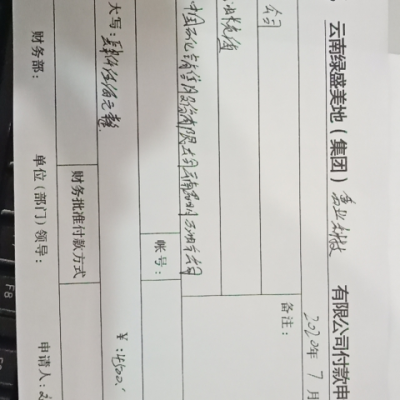 云南绿盛美地（集团）业科技有限公司付款申
2020年 7 月
公司
充值 备注：
中国石化销售股份有限公司云南石油分公司 账号：
财务批准付款方式
大写：肆仟伍佰元整 ￥:4500.
财务部： 单位（部门）领导： 申请人：